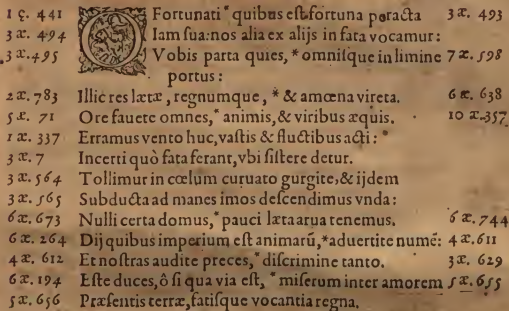 1 ç. 441 O Fortunati * quibus est fortuna peracta 3 æ. 493
3 æ. 494 Iam sua: nos alia ex alijs in fata vocamur:
3 æ. 495 Vobis parta quies, * omnisque in limine 7 æ. 598
portus:
2 æ. 783 Illic res lætæ, regnumque, * & amœna vireta. 6 æ. 638
5 æ. 71 Ore fauete omnes, * animis, & viribus æquis. 10 æ. 357
1 æ. 337 Erramus vento huc, vastis & fluctibus acti: *
3 æ. 7 Incerti quò fata ferant, vbi sistere detur.
3 æ. 564 Tollimur in cœlum curuato gurgite, & ijdem
3 æ. 565 Subducta ad manes imos descendimus vnda:
6 æ. 673 Nulli certa domus, * pauci læta arua tenemus. 6 æ. 744
6 æ. 264 Dij quibus imperium est animarū, * aduertite numē: 4 æ. 611
4 æ. 612 Et nostras audite preces, * discrimine tanto. 3 æ. 629
6 æ. 194 Este duces, ô si qua via est, * miserum inter amorem 5 æ. 655
5 æ. 656 Præsentis terræ, fatisque vocantia regna.